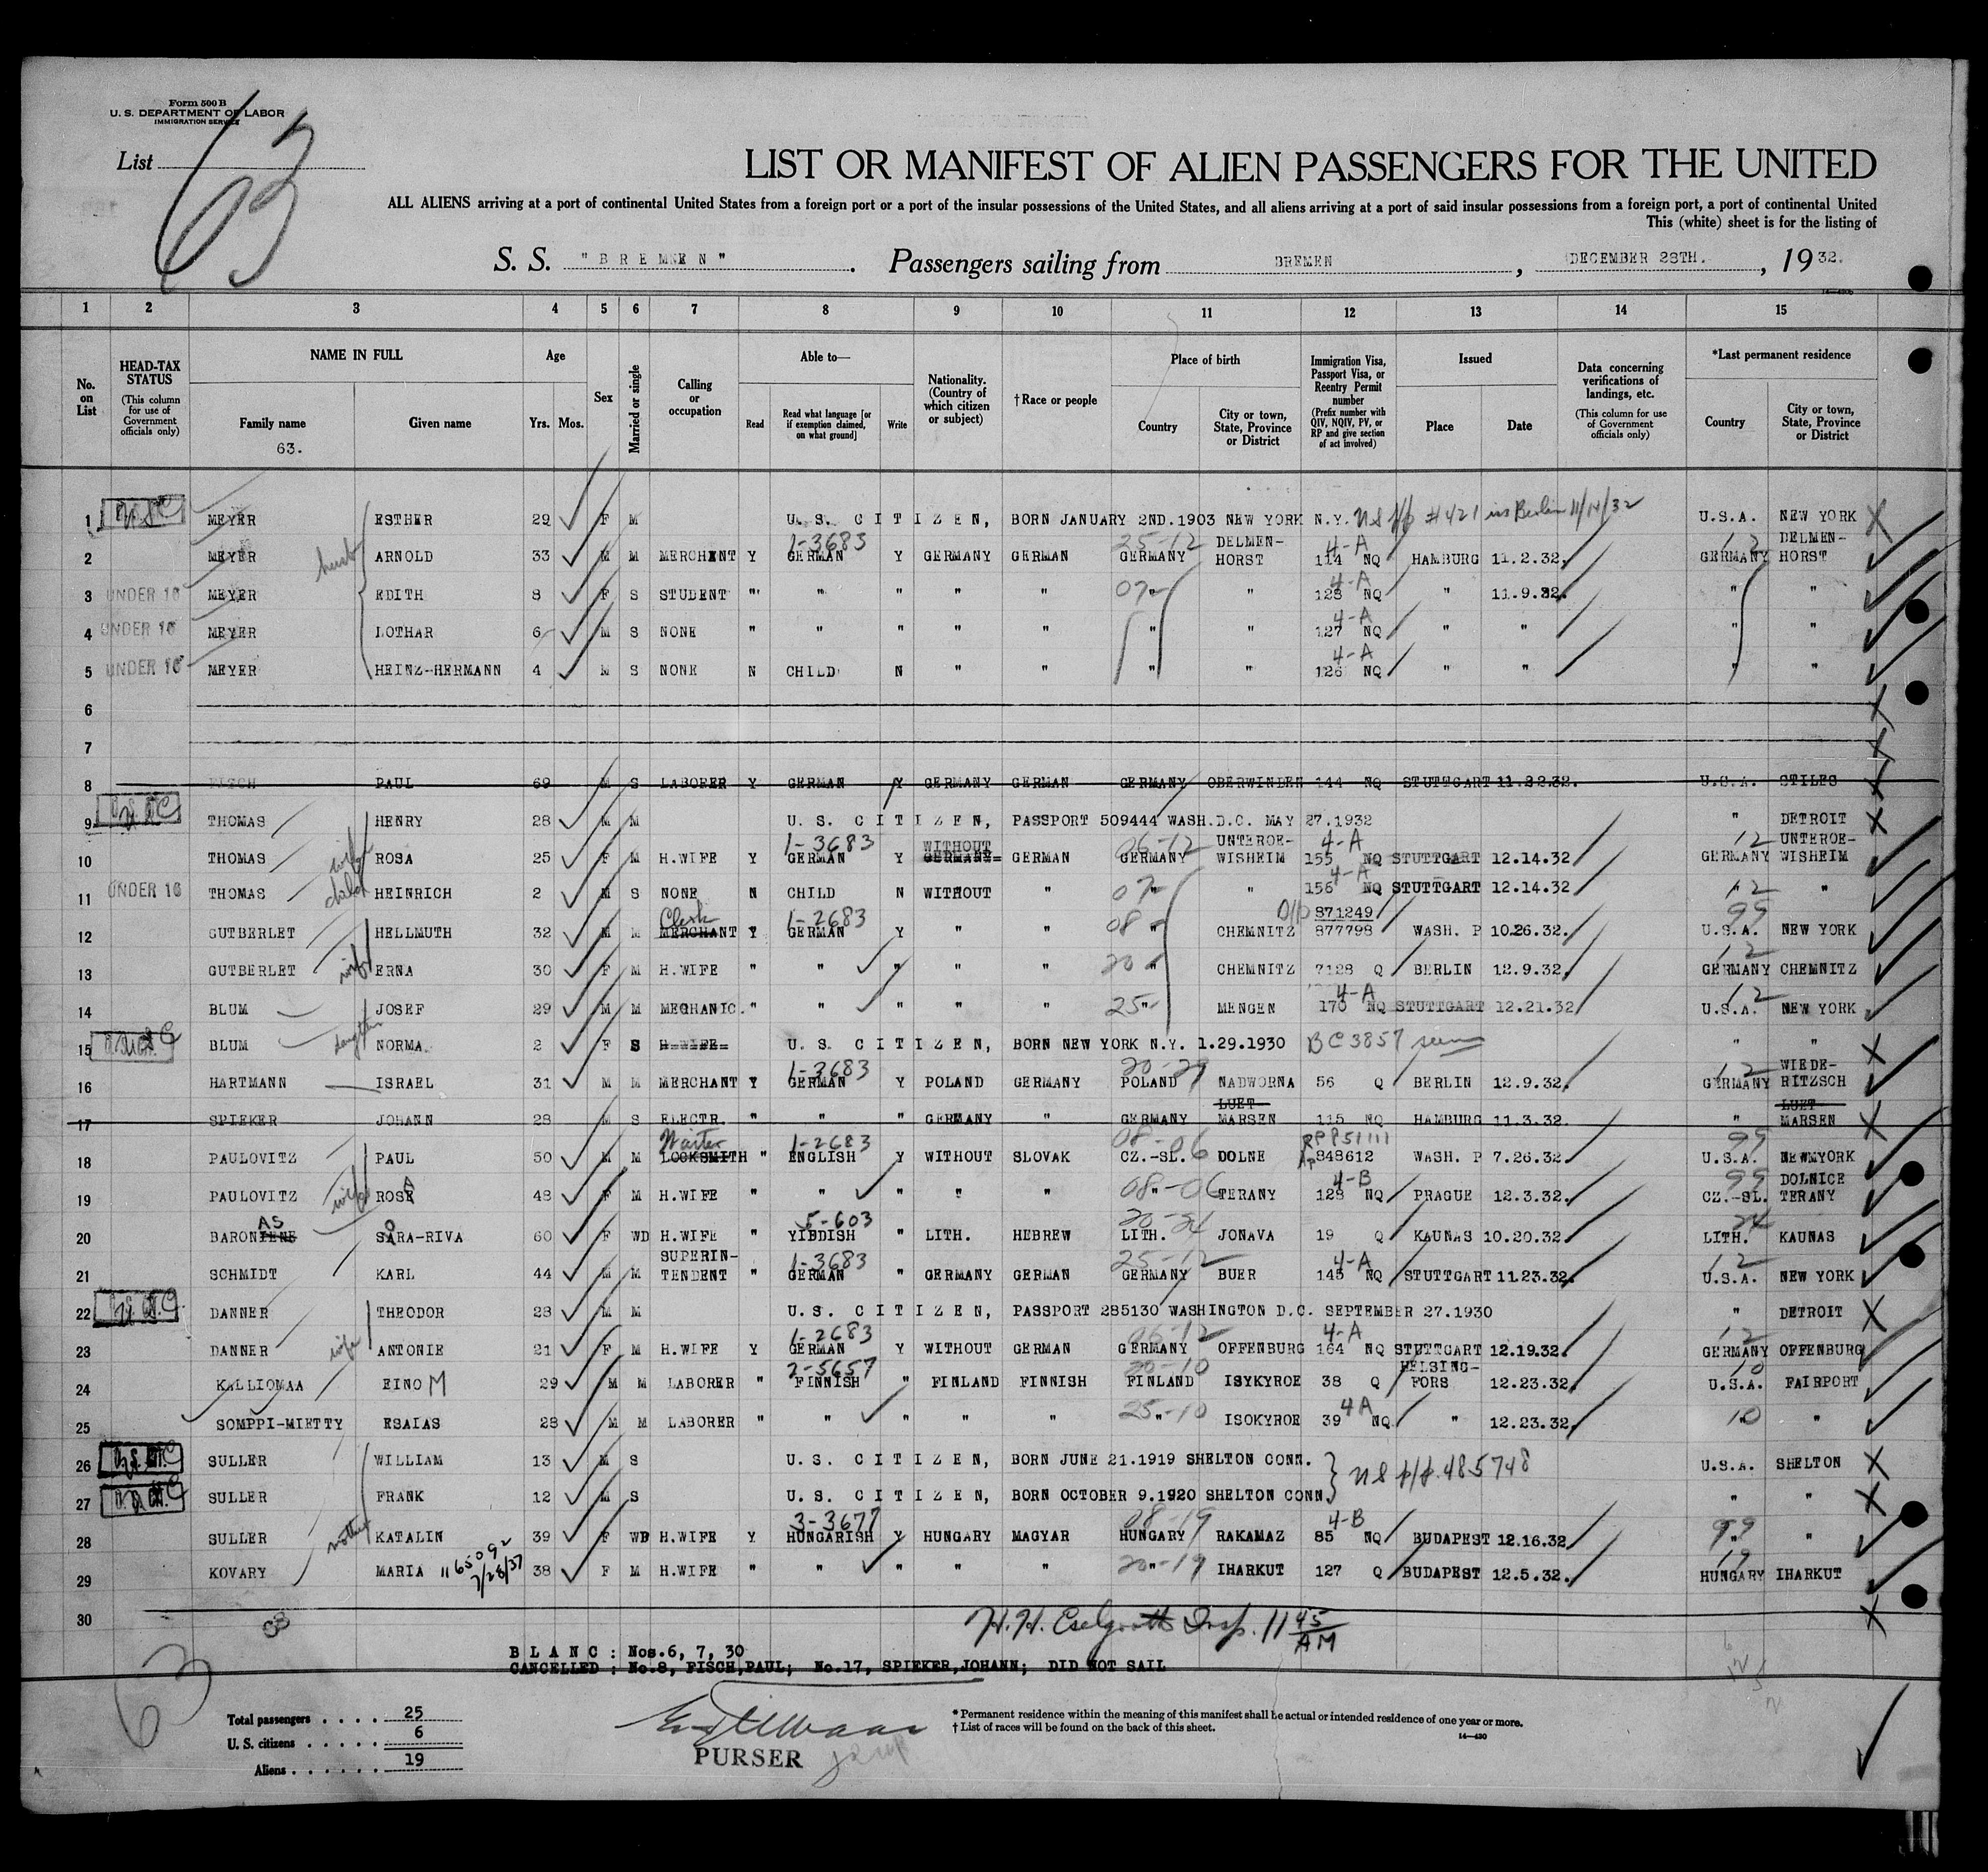 Form 500 B
U. S. DEPARTMENT OF LABOR
IMMIGRATION SERVICE
List
63
LIST OR MANIFEST OF ALIEN PASSENGERS FOR THE UNITED
ALL ALIENS arriving at a port of continental United States from a foreign port or a port of the insular possessions of the United States, and all aliens arriving at a port of said insular possessions from a foreign port, a port of continental United
This (white) sheet is for the listing of
S. S. "BREMEN". Passengers sailing from BREMEN, DECEMBER 28TH., 1932.
1 2 3 4 5 6 7 8 9 10 11 12 13 14 15
No. on List
HEAD-TAX STATUS (This column for use of Government officials only)
NAME IN FULL
Family name
63.
Given name
Age
Yrs. Mos.
Sex
Married or single
Calling or occupation
Able to—
Read
Read what language [or if exemption claimed, on what ground]
Write
Nationality. (Country of which citizen or subject)
† Race or people
Place of birth
Country
City or town, State, Province or District
Immigration Visa, Passport Visa, or Reentry Permit number (Prefix number with QIV, NQIV, PV, or RP and give section of act involved)
Issued
Place
Date
Data concerning verifications of landings, etc. (This column for use of Government officials only)
*Last permanent residence
Country
City or town, State, Province or District
1 USC MEYER ESTHER 29 F M U. S. CITIZEN, BORN JANUARY 2ND.1903 NEW YORK N.Y. US p/p #421 iss Berlin 11/14/32 U.S.A. NEW YORK
2 MEYER husb ARNOLD 33 M M MERCHANT Y 1-3683 GERMAN Y GERMANY GERMAN 25-12 GERMANY DELMEN-HORST 4-A 114 NQ HAMBURG 11.2.32. 12 GERMANY DELMEN-HORST
3 UNDER 16 MEYER EDITH 8 F S STUDENT " " " " " 07- " " 4-A 123 NQ " 11.9.32. " "
4 UNDER 16 MEYER LOTHAR 6 M S NONE " " " " " " " 4-A 127 NQ " " " "
5 UNDER 16 MEYER HEINZ-HERMANN 4 M S NONE N CHILD N " " " " 4-A 126 NQ " " " "
6
7
8 FISCH PAUL 69 M S LABORER Y GERMAN Y GERMANY GERMAN GERMANY OBERWINDEN 144 NQ STUTTGART 11.22.32. U.S.A. STILES
9 USC THOMAS HENRY 28 M M U. S. CITIZEN, PASSPORT 509444 WASH.D.C. MAY 27.1932 " DETROIT
10 THOMAS wife ROSA 25 F M H.WIFE Y 1-3683 GERMAN Y WITHOUT GERMANY GERMAN 06-12 GERMANY UNTEROE-WISHEIM 4-A 155 NQ STUTTGART 12.14.32 12 GERMANY UNTEROE-WISHEIM
11 UNDER 16 THOMAS child HEINRICH 2 M S NONE N CHILD N WITHOUT " 07- " " 4-A 156 NQ STUTTGART 12.14.32 12 " "
12 GUTBERLET HELLMUTH 32 M M Clerk MERCHANT Y 1-2683 GERMAN Y " " 08- " CHEMNITZ 871249 877798 WASH. P 10.26.32. 99 U.S.A. NEW YORK
13 GUTBERLET wife ERNA 30 F M H.WIFE " " " " " 20- " CHEMNITZ 7128 Q BERLIN 12.9.32. 12 GERMANY CHEMNITZ
14 BLUM JOSEF 29 M M MECHANIC. " " " " " 25- " MENGEN 4-A 170 NQ STUTTGART 12.21.32 12 U.S.A. NEW YORK
15 USC BLUM daughter NORMA 2 F S H.WIFE U. S. CITIZEN, BORN NEW YORK N.Y. 1.29.1930 BC 3857 seen " "
16 HARTMANN ISRAEL 31 M M MERCHANT Y 1-3683 GERMAN Y POLAND GERMANY 20-29 POLAND NADWORNA 56 Q BERLIN 12.9.32. 12 GERMANY WIEDE-RITZSCH
17 SPIEKER JOHANN 28 M S ELECTR. " " " GERMANY " GERMANY LUET-MARSEN 115 NQ HAMBURG 11.3.32. " LUET-MARSEN
18 PAULOVITZ PAUL 50 M M Waiter LOCKSMITH " 1-2683 ENGLISH Y WITHOUT SLOVAK 08-06 CZ.-SL. DOLNE RP P51111 848612 WASH. P 7.26.32. 99 U.S.A. NEWMYORK
19 PAULOVITZ wife ROSA 48 F M H.WIFE " " " " " 08-06 " TERANY 4-B 128 NQ PRAGUE 12.3.32. 99 CZ.-SL. DOLNICE TERANY
20 BARONIENE AS SARA-RIVA 60 F WD H.WIFE " 5-603 YIDDISH " LITH. HEBREW 20-24 LITH. JONAVA 19 Q KAUNAS 10.20.32. 24 LITH. KAUNAS
21 SCHMIDT KARL 44 M M SUPERIN-TENDENT " 1-3683 GERMAN " GERMANY GERMAN 25-12 GERMANY BUER 4-A 145 NQ STUTTGART 11.23.32. 12 U.S.A. NEW YORK
22 USC DANNER THEODOR 28 M M U. S. CITIZEN, PASSPORT 285130 WASHINGTON D.C. SEPTEMBER 27.1930 " DETROIT
23 DANNER wife ANTONIE 21 F M H.WIFE Y 1-2683 GERMAN Y WITHOUT GERMAN 06-12 GERMANY OFFENBURG 4-A 164 NQ STUTTGART 12.19.32. 12 GERMANY OFFENBURG
24 KALLIOMAA EINO M 29 M M LABORER " 2-5657 FINNISH " FINLAND FINNISH 20-10 FINLAND ISYKYROE 38 Q HELSING-FORS 12.23.32. 10 U.S.A. FAIRPORT
25 SOMPPI-MIETTY ESAIAS 28 M M LABORER " " " " " 25-10 " ISOKYROE 4A 39 NQ " 12.23.32. 10 " "
26 USC SULLER WILLIAM 13 M S U. S. CITIZEN, BORN JUNE 21.1919 SHELTON CONN. US p/p 485748 U.S.A. SHELTON
27 USC SULLER FRANK 12 M S U. S. CITIZEN, BORN OCTOBER 9.1920 SHELTON CONN. " "
28 SULLER mother KATALIN 39 F WD H.WIFE Y 3-3677 HUNGARISH Y HUNGARY MAGYAR 08-19 HUNGARY RAKAMAZ 4-B 85 NQ BUDAPEST 12.16.32. 99 " "
29 KOVARY MARIA 1165092 7/28/37 38 F M H.WIFE " " " " " 20-19 " IHARKUT 127 Q BUDAPEST 12.5.32. 19 HUNGARY IHARKUT
30
H.H. Insp. 11 45 AM
BLANC: Nos.6, 7, 30
CANCELLED: No.8, FISCH,PAUL; No.17, SPIEKER,JOHANN; DID NOT SAIL
63
Total passengers . . . . 25
U. S. citizens . . . . . 6
Aliens . . . . . . 19
PURSER
* Permanent residence within the meaning of this manifest shall be actual or intended residence of one year or more.
† List of races will be found on the back of this sheet.
14—430